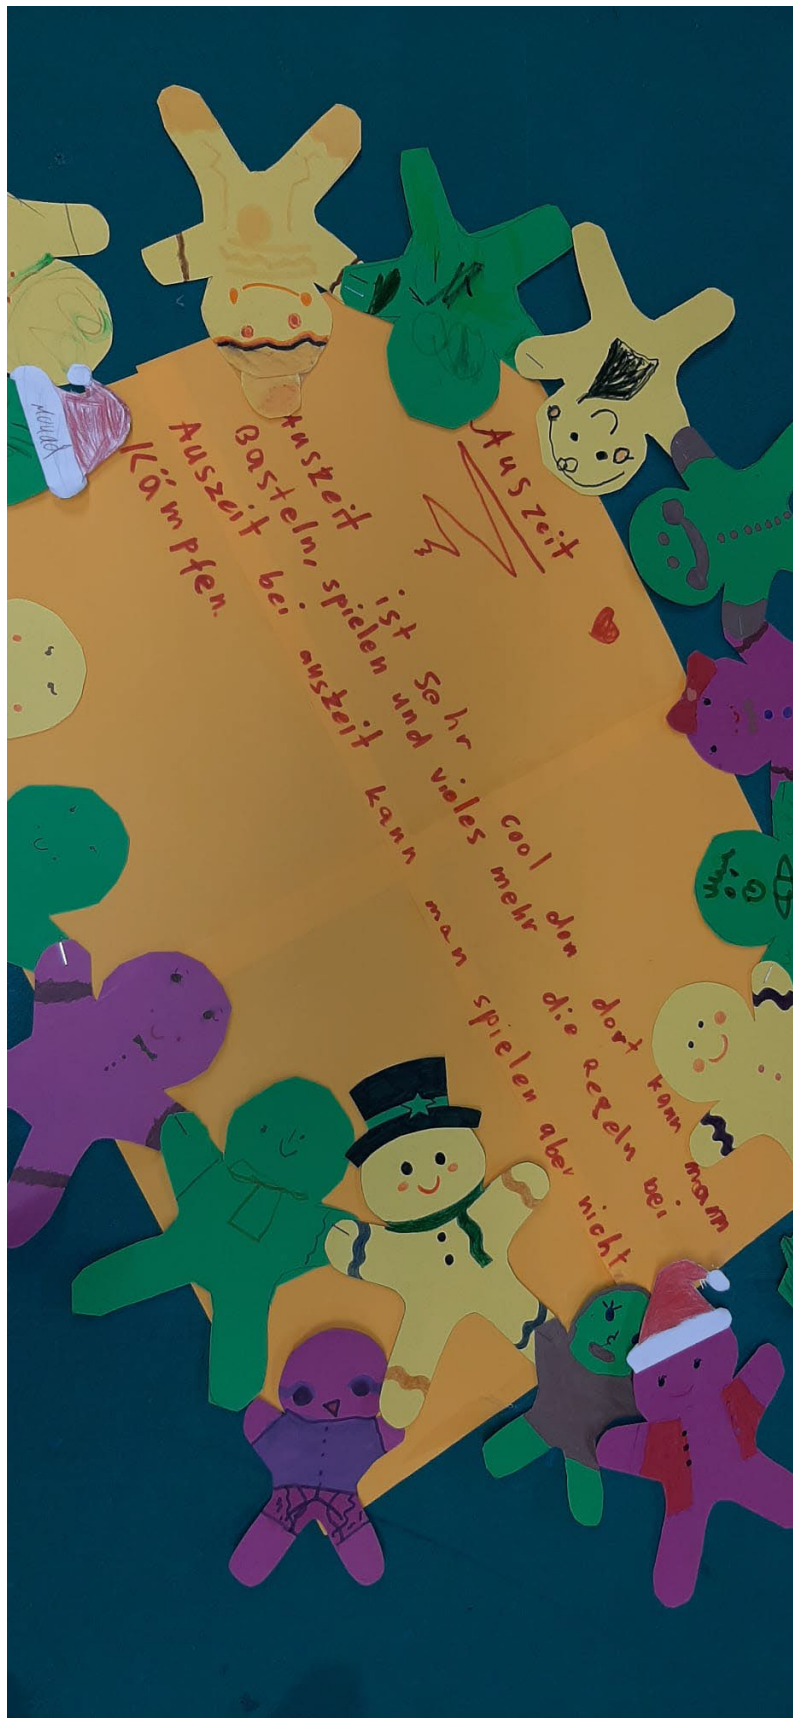 Auszeit
Auszeit ist sehr cool den dort kann mann
Basteln, spielen und vieles mehr die Regeln bei
Auszeit bei auszeit kann man spielen aber nicht
Kämpfen.
Mouad